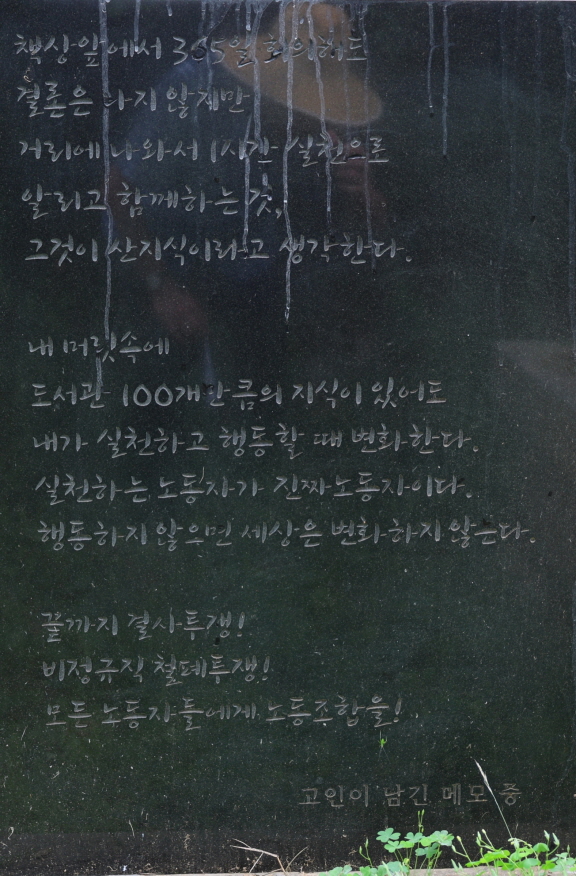 책상앞에서 365일 회의해도
결론은 나지 않지만
거리에 나와서 1시간 실천으로
알리고 함께하는 것,
그것이 산지식이라고 생각한다.
내 머릿속에
도서관 100개만큼의 지식이 있어도
내가 실천하고 행동할 때 변화한다.
실천하는 노동자가 진짜노동자이다.
행동하지 않으면 세상은 변화하지 않는다.
끝까지 결사투쟁!
비정규직 철폐투쟁!
모든 노동자들에게 노동조합을!
고인이 남긴 메모 중